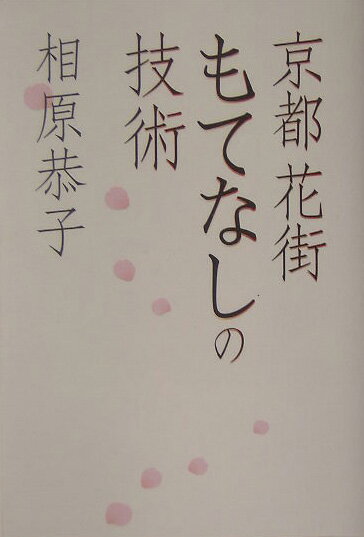 京都花街
もてなしの
技術
相原恭子